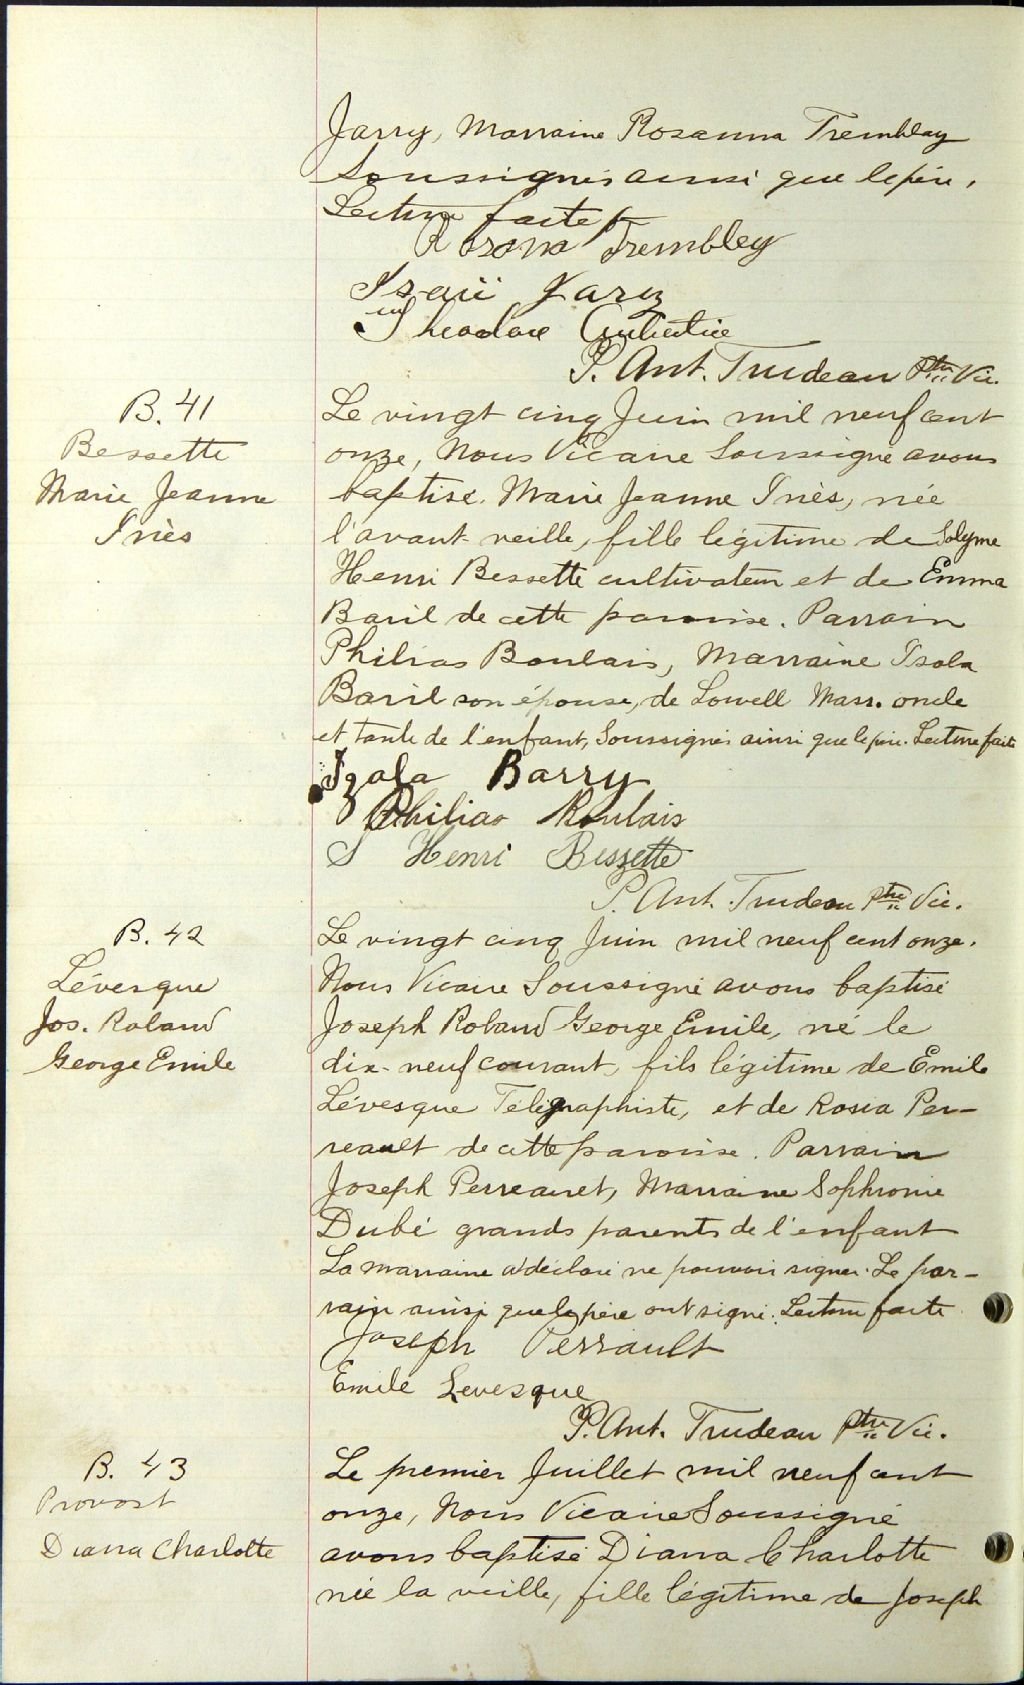 Jarry, Marraine Rosanna Tremblay
Soussignés ainsi que le père.
Lecture faite
Rosana Trembley
Isaïe Jary
Theodore
P. Ant. Trudeau Ptre Vic.
B. 41
Bessette
Marie Jeanne
Inès
Le vingt cinq Juin mil neuf cent
onze, Nous Vicaire Soussigné avons
baptisé Marie Jeanne Inès, née
l'avant-veille, fille légitime de Solyme
Henri Bessette cultivateur et de Emma
Baril de cette paroisse. Parrain
Philias Boulais, Marraine Isola
Baril son épouse, de Lowell Mass. oncle
et tante de l'enfant, Soussignés ainsi que le père. Lecture faite
Izola Barry
Philias Boulais
S Henri Bessette
P. Ant. Trudeau Ptre Vic.
B. 42
Lévesque
Jos. Roland
George Emile
Le vingt cinq Juin mil neuf cent onze.
Nous Vicaire Soussigné avons baptisé
Joseph Roland George Emile, né le
dix-neuf courant, fils légitime de Emile
Lévesque Télégraphiste, et de Rosia Per-
reault de cette paroisse. Parrain
Joseph Perreault, Marraine Sophronie
Dubé grands parents de l'enfant
La marraine a déclaré ne pouvoir signer. Le par-
rain ainsi que le père ont signé. Lecture faite
Joseph Perrault
Emile Levesque
P. Ant. Trudeau Ptre Vic.
B. 43
Provost
Diana Charlotte
Le premier Juillet mil neuf cent
onze, Nous Vicaire Soussigné
avons baptisé Diana Charlotte
née la veille, fille légitime de Joseph